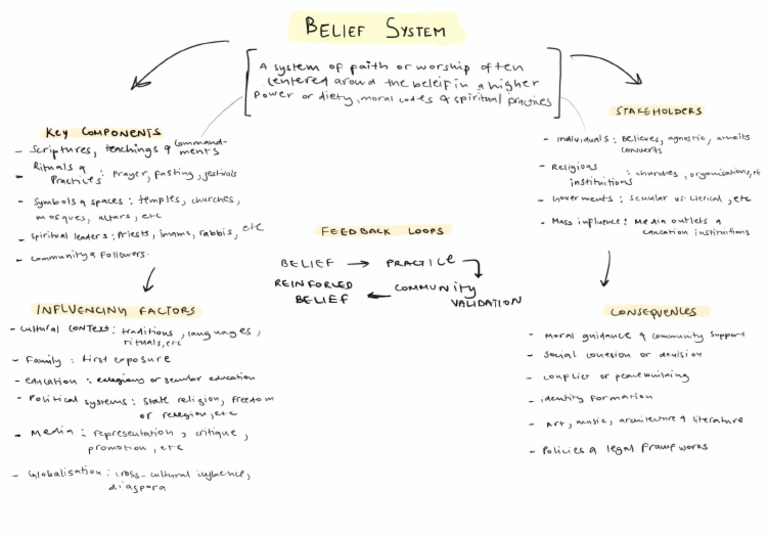 BELIEF SYSTEM
A system of faith or worship often
centered around the beleif in a higher
power or diety, moral codes & spiritual practices
KEY COMPONENTS
- Scriptures, teachings & command-
ments
- Rituals &
Practices : Prayer, fasting, festivals
- Symbols & spaces : temples, churches,
mosques, altars, etc
- Spiritual leaders : Priests, imams, rabbis, etc
- Community & Followers.
INFLUENCING FACTORS
- Cultural context : traditions, languages,
rituals, etc
- Family : first exposure
- education : relegious or secular education
- Political systems : State religion, freedom
or relegion, etc
- Media : representation, critique,
promotion, etc
- Globalisation : cross-cultural influence,
diaspora
FEEDBACK LOOPS
BELIEF → PRACTICE
REINFORCED BELIEF ← COMMUNITY VALIDATION
STAKEHOLDERS
- Individuals : Believes, agnostic, atheits
converts
- Religions
instituitions : churches, organisations, et
- Goverments : Secular vs clerical, etc
- Mass influence : Media outlets &
education instituitions
CONSEQUENCES
- Moral guidance & community support
- Social cohesion or division
- Conflict or peacebuilding
- identity formation
- Art, music, architecture & literature
- Policies & legal frameworks